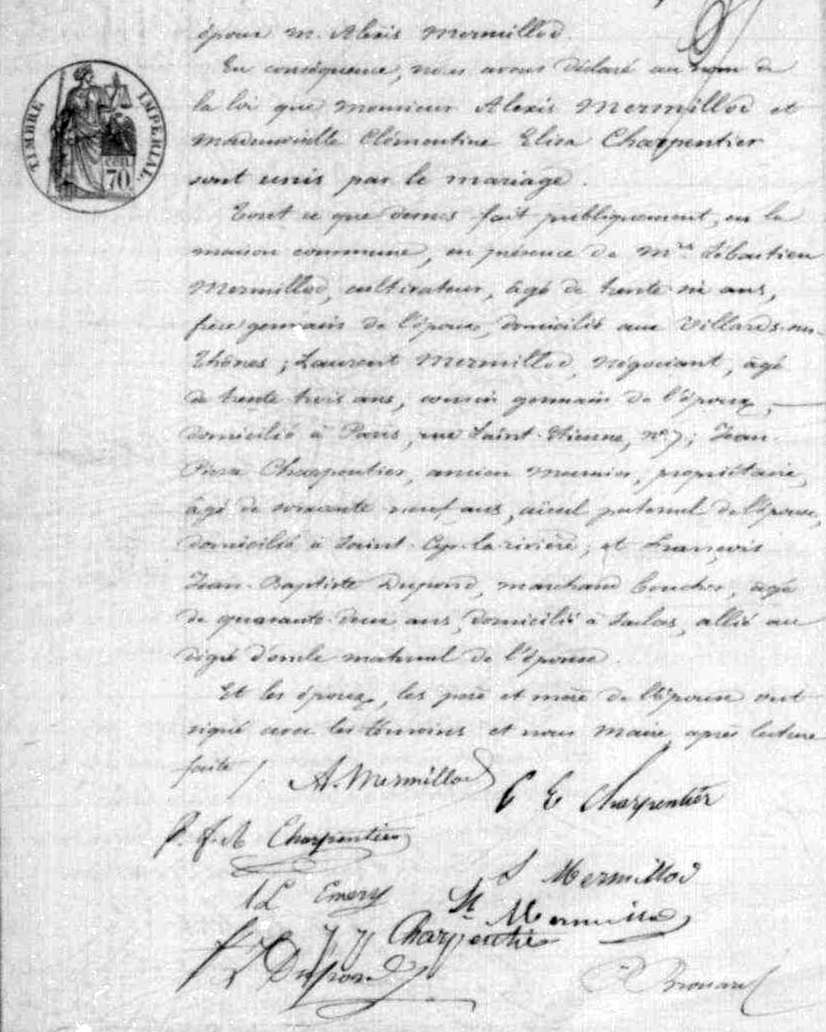 TIMBRE IMPERIAL
CEN. 70
époux m. Alexis Mermillod.
En conséquence, nous avons déclaré au nom de
la loi que monsieur Alexis Mermillod et
mademoiselle Clémentine Elisa Charpentier
sont unis par le mariage.
Tout ce que dessus fait publiquement, en la
maison commune, en présence de Mrs Sébastien
Mermillod, cultivateur, âgé de trente six ans,
frère germain de l'époux, domicilié aux Villards-sur-
Thônes ; Laurent Mermillod, négociant, âgé
de trente trois ans, cousin germain de l'époux,
domicilié à Paris, rue Saint-Etienne, no 7; Jean-
Pierre Charpentier, ancien meunier, propriétaire,
âgé de soixante neuf ans, aïeul paternel de l'épouse,
domicilié à Saint-Cyr-la-rivière; et François
Jean-Baptiste Dupond, marchand boucher, âgé
de quarante deux ans, domicilié à Saclas, allié au
degré d'oncle maternel de l'épouse.
Et les époux, les père et mère de l'épouse ont
signé avec les témoins et nous Maire, après lecture
faite /.
A. Mermillod
C E Charpentier
Charpentier
Emery
S Mermillod
Mermillod
Charpentier
Dupond